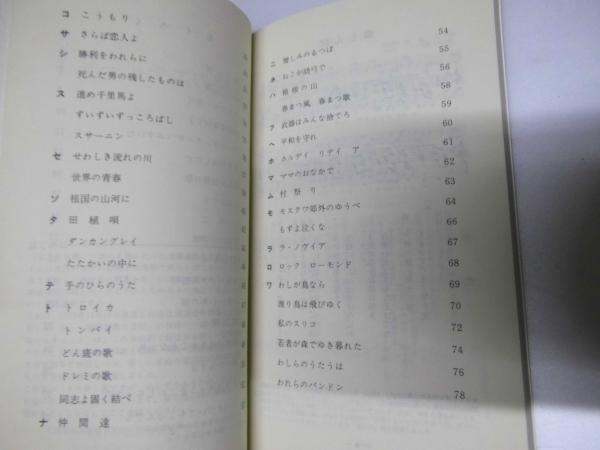 コ こうもり
サ さらば恋人よ
シ 勝利をわれらに
死んだ男の残したものは
ス 進め千里馬よ
すいすいずっころばし
スサーニン
セ せわしき流れの川
世界の青春
ソ 祖国の山河に
タ 田植唄
ダンカングレイ
たたかいの中に
テ 手のひらのうた
ト トロイカ
トンバイ
どん底の歌
ドレミの歌
同志よ固く結べ
ナ 仲間達
ニ 憎しみのるつぼ 54
ネ ねこが胡弓で 55
ハ 箱根の山 56
春まつ風 春まつ歌 58
フ 武器はみんな捨てろ 59
ヘ 平和を守れ 60
ホ ホルディ リディ ア 61
マ ママのおなかで 62
ム 村祭り 63
モ モスクワ郊外のゆうべ 64
もずよ泣くな 66
ラ ラ・ノヴィア 67
ロ ロック ローモンド 68
ワ わしが鳥なら 69
渡り鳥は飛びゆく 70
私のスリコ 72
若者が森でゆき暮れた 74
わしらのうたうは 76
われらのバンドン 78